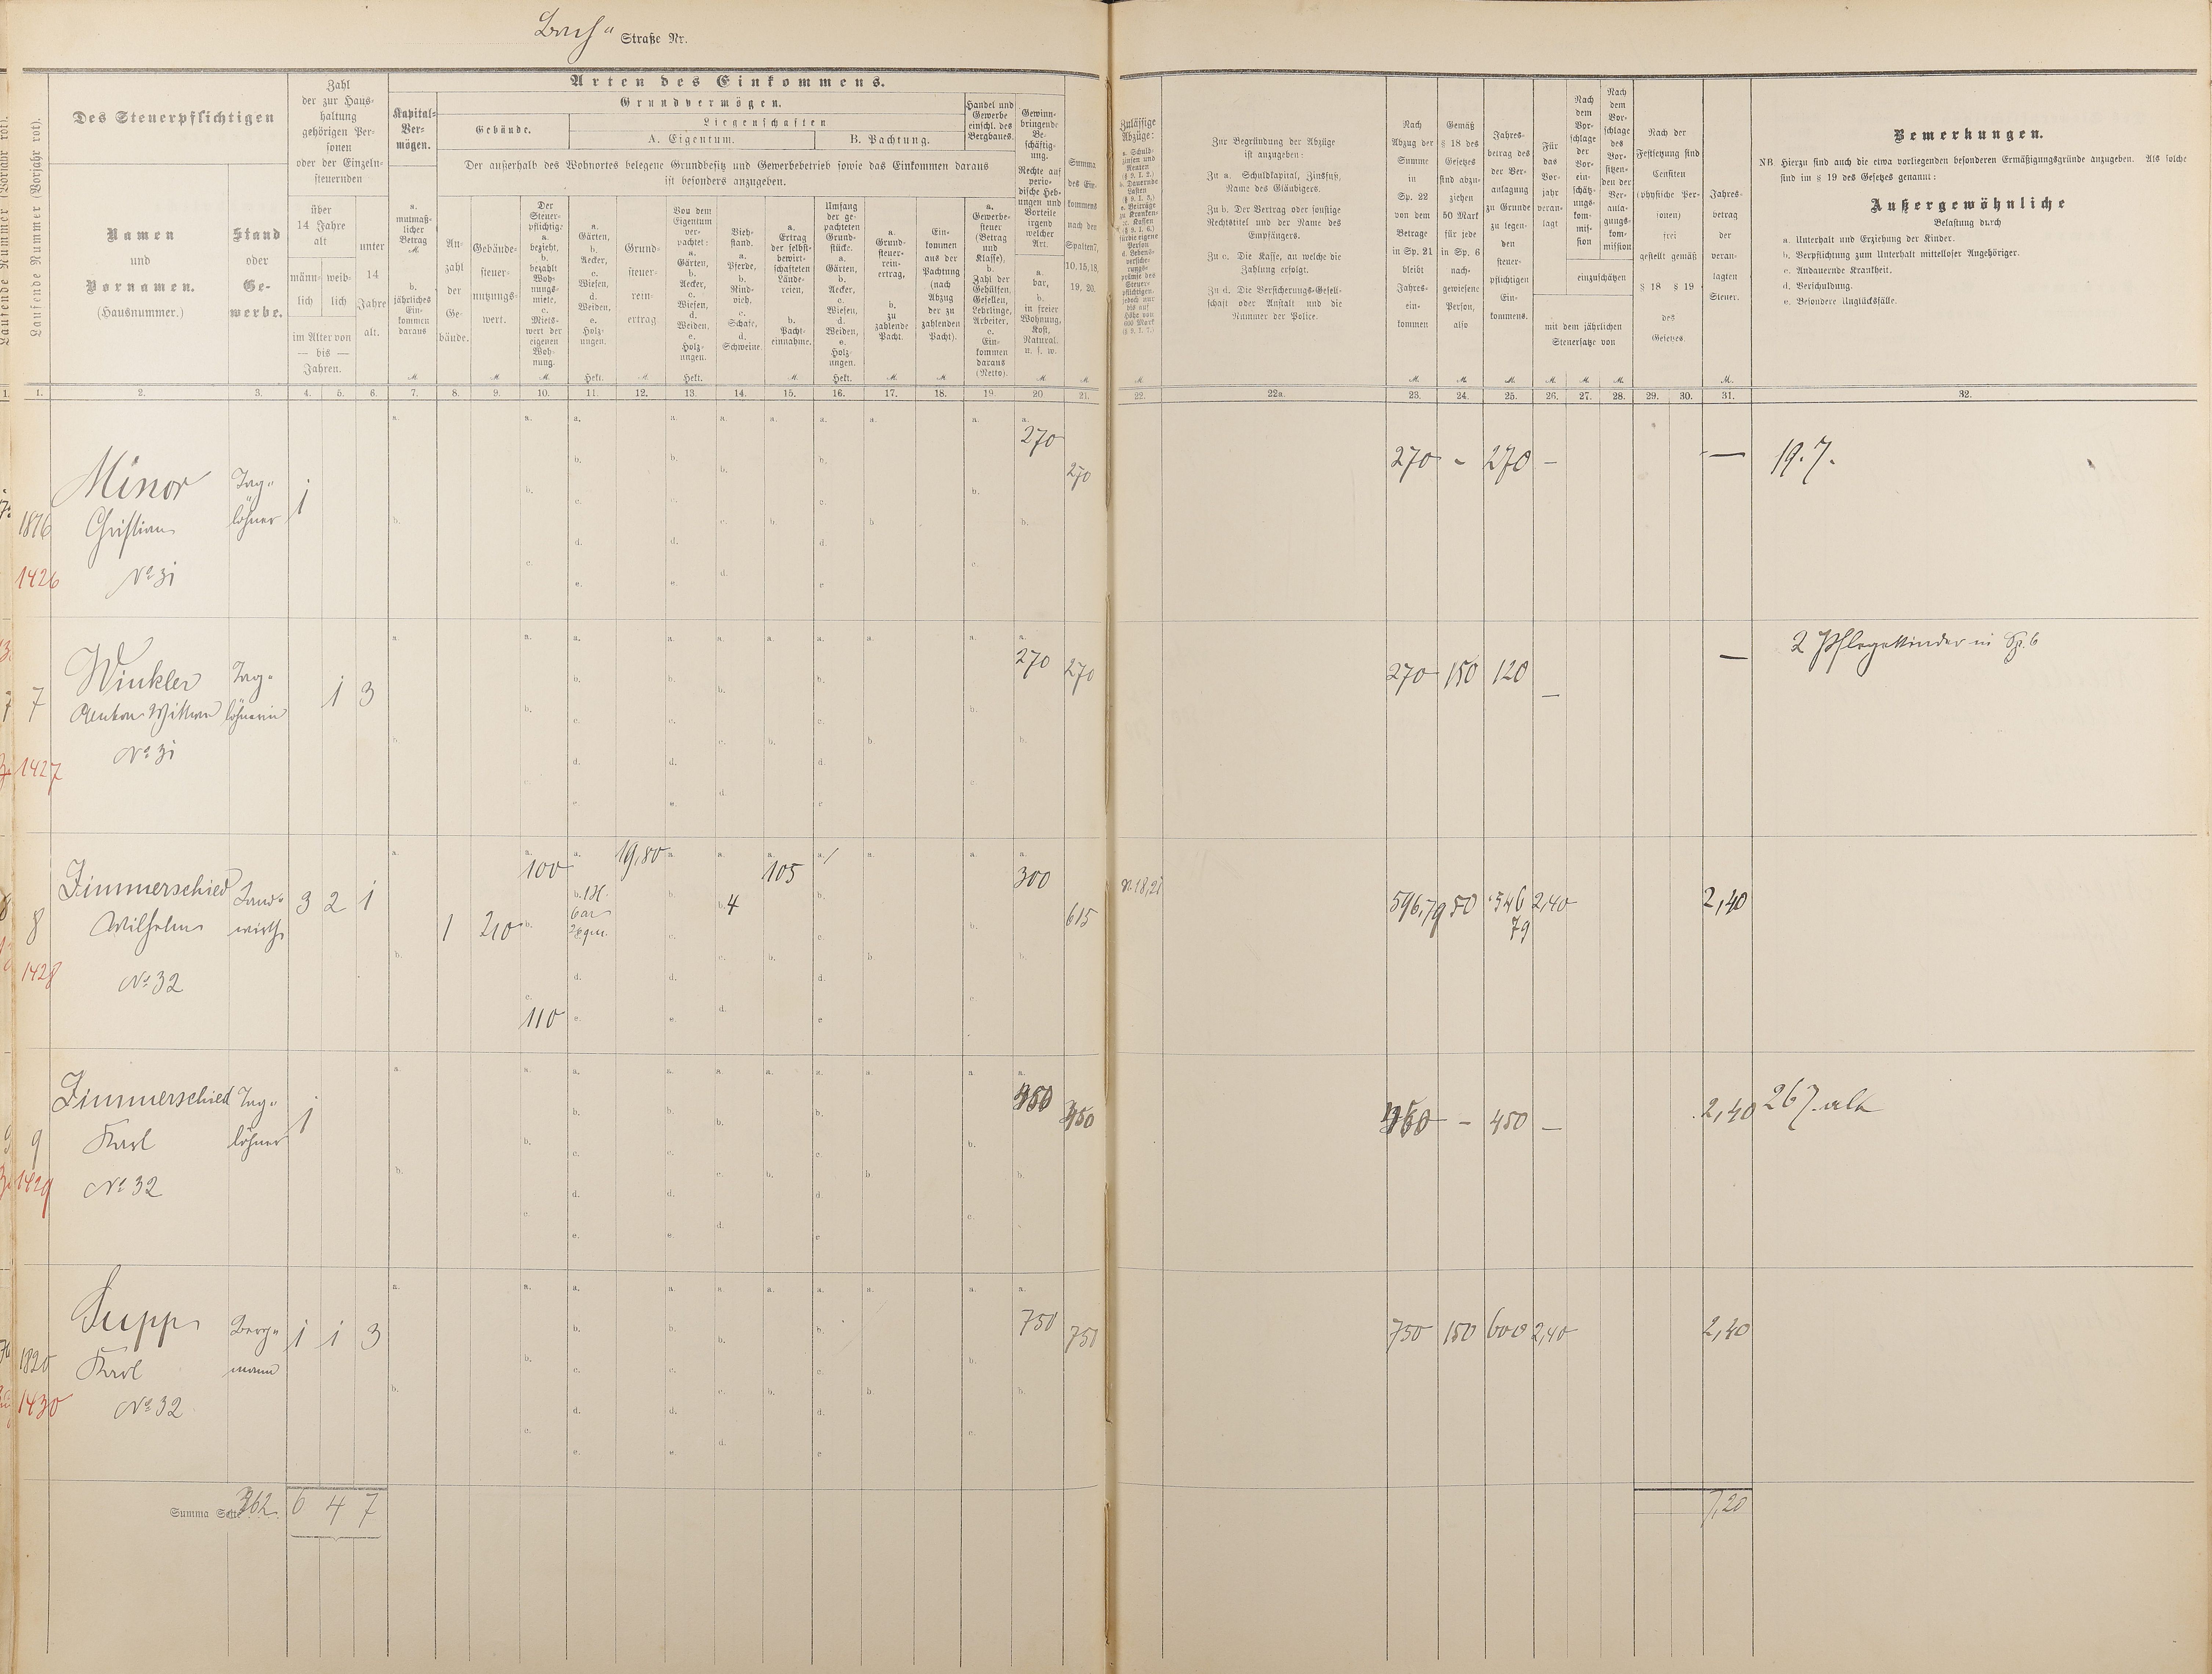 Bach" Straße Nr.
Laufende Nummer (Vorjahr rot).
Des Steuerpflichtigen
Namen
und
Vornamen.
(Hausnummer.)
Stand
oder
Ge-
werbe.
Zahl
der zur Haus-
haltung
gehörigen Per-
sonen
oder der Einzeln-
steuernden
über
14 Jahre
alt
männ-
lich
weib-
lich
im Alter von
— bis —
Jahren.
unter
14
Jahre
alt.
Arten des Einkommens.
Kapital-
Ver-
mögen.
a.
mutmaß-
licher
Betrag
M.
b.
jährliches
Ein-
kommen
daraus
M.
Grundvermögen.
Gebäude.
Liegenschaften
A. Eigentum.
B. Pachtung.
Der außerhalb des Wohnortes belegene Grundbesitz und Gewerbebetrieb sowie das Einkommen daraus
ist besonders anzugeben.
An-
zahl
der
Ge-
bäude.
Gebäude-
steuer-
nutzungs-
wert.
M.
Der
Steuer-
pflichtige
a.
bezieht,
b.
bezahlt
Woh-
nungs-
miete,
c.
Miets-
wert der
eigenen
Woh-
nung.
M.
a.
Gärten,
b.
Aecker,
c.
Wiesen,
d.
Weiden,
e.
Holz-
ungen.
Hekt.
Grund-
steuer-
rein-
ertrag
M.
Von dem
Eigentum
ver-
pachtet:
a.
Gärten,
b.
Aecker,
c.
Wiesen,
d.
Weiden,
e.
Holz-
ungen.
Hekt.
Vieh-
stand.
a.
Pferde,
b.
Rind-
vieh,
c.
Schafe,
d.
Schweine.
a.
Ertrag
der selbst-
bewirt-
schafteten
Lände-
reien,
b.
Pacht-
einnahme.
M.
Umfang
der ge-
pachteten
Grund-
stücke.
a.
Gärten,
b.
Aecker,
c.
Wiesen,
d.
Weiden,
e.
Holz-
ungen.
Hekt.
a.
Grund-
steuer-
rein-
ertrag,
b.
zu
zahlende
Pacht.
M.
Ein-
kommen
aus der
Pachtung
(nach
Abzug
der zu
zahlenden
Pacht).
M.
Handel und
Gewerbe
einschl. des
Bergbaues.
a.
Gewerbe-
steuer
(Betrag
und
Klasse),
b.
Zahl der
Gehülfen,
Gesellen,
Lehrlinge,
Arbeiter,
c.
Ein-
kommen
daraus
(Netto).
Gewinn-
bringende
Be-
schäftig-
ung.
Rechte auf
perio-
dische Heb-
ungen und
Vorteile
irgend
welcher
Art.
a.
bar,
b.
in freier
Wohnung,
Kost,
Natural.
u. s. w.
M.
Summa
des Ein-
kommens
nach den
Spalten 7,
10, 15, 18,
19, 20.
M.
Zulässige
Abzüge:
M.
Zur Begründung der Abzüge
ist anzugeben:
Zu a. Schuldkapital, Zinsfuß,
Name des Gläubigers.
Zu b. Der Vertrag oder sonstige
Rechtstitel und der Name des
Empfängers.
Zu c. Die Kasse, an welche die
Zahlung erfolgt.
Zu d. Die Versicherungs-Gesell-
schaft oder Anstalt und die
Nummer der Police.
Nach
Abzug der
Summe
in
Sp. 22
von dem
Betrage
in Sp. 21
bleibt
Jahres-
ein-
kommen
M.
Gemäß
§ 18 des
Gesetzes
sind abzu-
ziehen
50 Mark
für jede
in Sp. 6
nach-
gewiesene
Person,
also
M.
Jahres-
betrag des
der Ver-
anlagung
zu Grunde
zu legen-
den
steuer-
pflichtigen
Ein-
kommens.
M.
Für
das
Vor-
jahr
veran-
lagt
Nach
dem
Vor-
schlage
der
Vor-
ein-
schätz-
ungs-
kom-
mis-
sion
Nach
dem
Vor-
schlage
des
Vor-
sitzen-
den der
Ver-
anla-
gungs-
kom-
mission
einzuschätzen
mit dem jährlichen
Steuersatze von
M. M. M.
Nach der
Festsetzung sind
Censiten
(physische Per-
sonen)
frei
gestellt gemäß
§ 18 § 19
des
Gesetzes
Jahres-
betrag
der
veran-
lagten
Steuer.
M.
Bemerkungen.
NB Hierzu sind auch die etwa vorliegenden besonderen Ermäßigungsgründe anzugeben. Als solche
sind im § 19 des Gesetzes genannt:
Außergewöhnliche
Belastung durch
a. Unterhalt und Erziehung der Kinder.
b. Verpflichtung zum Unterhalt mittelloser Angehöriger.
c. Andauernde Krankheit.
d. Verschuldung.
e. Besondere Unglücksfälle.
1. 2. 3. 4. 5. 6. 7. 8. 9. 10. 11. 12. 13. 14. 15. 16. 17. 18. 19. 20 21. 22. 22a. 23. 24. 25. 26. 27. 28. 29. 30. 31. 32.
1876
1426
Minor
Christian
No 31
Tag-
löhner
1
270 270
270 - 270 — — 19. J.
7
1427
Winkler
Anton Wittwe
No 31
Tag-
löhnerin
1 3
270 270
270 150 120 — —
2 Pflegekinder in Sp. 6
8
1428
Zimmerschied
Wilhelm
No 32
Land-
wirth
3 2 1
1 210
100
110
19,80
4
105
300
615
18,21
596,79 50 546
79
2,40
2,40
9
1429
Zimmerschied
Karl
No 32
Tag-
löhner
1
450
450
450 — 450 —
2,40
26 J. alt
1820
1430
Supp
Karl
No 32
Berg-
mann
1 1 3
750 750
750 150 600 2,40
2,40
Summa Seite 362. 6 4 7
7,20